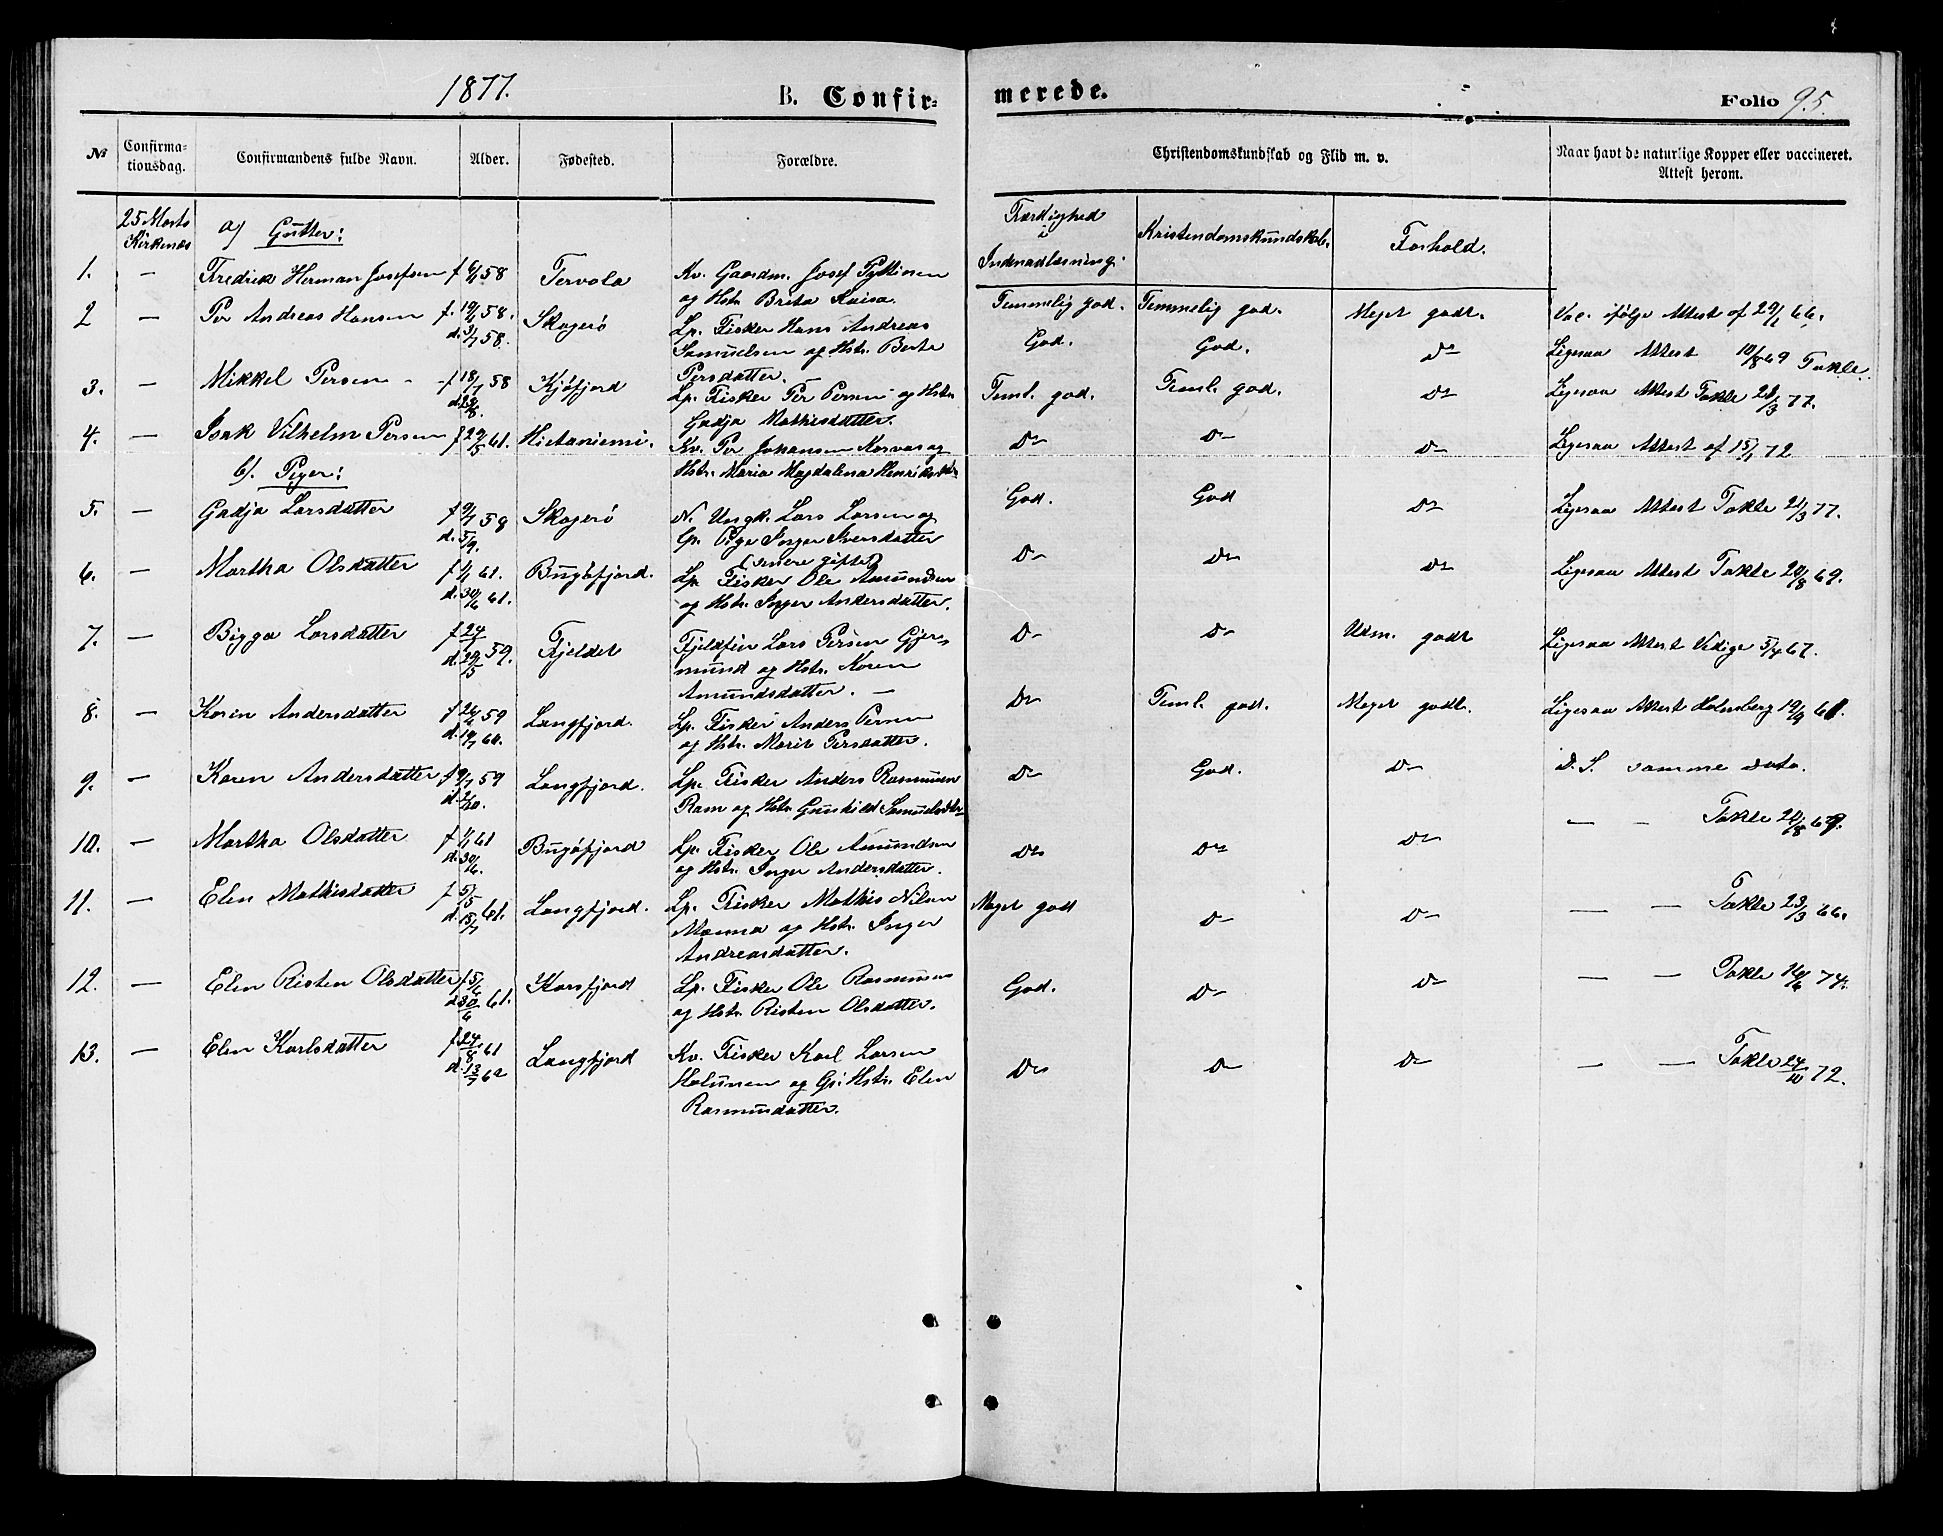 1877.
B. Confir-
merede.
Folio 95.
No
Confirma-
tionsdag.
Confirmandens fulde Navn.
Alder.
Fødested.
Forældre.
Christendomskundskab og Flid m. v.
Naar havt de naturlige Kopper eller vaccineret.
Attest herom.
25 Marts
Kirkenæs
a) Gutter:
Færdighed
i
Indenadlæsning.
Kristendomskundskab.
Forhold.
1. — Fredrik Herman Josefsen f 6/1 58 Tervola Kv. Gaardm. Josef Pyttinen
og Hstr. Brita Kaisa.
Temmelig god. Temmelig god. Meget godt. Vac. ifølge Attest af 29/1 66.
2 — Per Andreas Hansen f. 19/6 58.
d. 3/7 58. Skogerø Lp. Fisker Hans Andreas
Samuelsen og Hstr. Berte
Persdatter.
God. God. Do Ligesaa Attest 10/8 69 Takle.
3. — Mikkel Persen - f 18/7 58
d 29/8. Kjøfjord Lp. Fisker Per Persen og Hstr.
Gadja Mathisdatter.
Teml. god. Teml. god. Do Ligesaa Attest Takle 21/3 77.
4. — Isak Vilhelm Persen f 29/5 61. Hietaniemi. Kv. Per Johansen Korvas og
Hstr. Maria Magdalena Henriksdtr
Do Do Do Ligesaa Attest af 15/1 72
b). Piger:
5. — Gadja Larsdatter f 9/7 59
d. 5/9. Skogerø N. Ungk. Lars Larsen og
Lp. Pige Inger Iversdatter
(senere gifte)
God. God Do Ligesaa Attest Takle 21/3 77.
6. — Martha Olsdatter f 1/1 61.
d. 30/6 61. Bugøfjord. Lp. Fisker Ole Amundsen
og Hstr. Inger Andersdatter.
Do Do Do Ligesaa Attest Takle 20/8 69.
7. — Bigga Larsdatter f 24/1
d. 29/5 59. Fjeldet Fjeldfin Lars Persen Gjer-
mund og Hstr. Karen
Amundsdatter. —
Do Do Udm. godt Ligesaa Attest Vidige 5/4 67.
8. — Karin Andersdatter f 26/4 59
d. 19/7 60. Langfjord. Lp. Fisker Anders Persen
og Hstr. Marit Persdatter.
Do Teml. god. Meget godt. Ligesaa Attest Holmberg 19/9 61.
9. — Karen Andersdatter f 9/7 59
d 2/10. Langfjord. Lp. Fisker Anders Rasmusen
Ram og Hstr. Gunhild Samuelsdtr
Do God. Do D. S. samme dato.
10. — Martha Olsdatter f 1/1 61
d. 30/6. Bugøfjord Lp. Fisker Ole Amundsen
og Hstr. Inger Andersdatter.
Do Do Do — — Takle 20/8 69.
11. — Elen Mathisdatter f 5/5
d. 15/7 61. Langfjord. Lp. Fisker Mathis Nilsen
Manna og Hstr. Inger
Andreasdatter.
Meget god Do Do — — Takle 23/3 66.
12. — Elen Risten Olsdatter f 5/6
d 30/6 61. Korsfjord Lp. Fisker Ole Rasmusen
og Hstr. Risten Olsdatter.
God. Do Do — — Takle 16/6 74.
13. — Elen Karlsdatter f. 24/8 61
d. 13/7 62 Langfjord Kv. Fisker Karl Larsen
Halunen og Lp. Hstr. Elen
Rasmusdatter.
Do Do Do — — Takle 24/10 72.